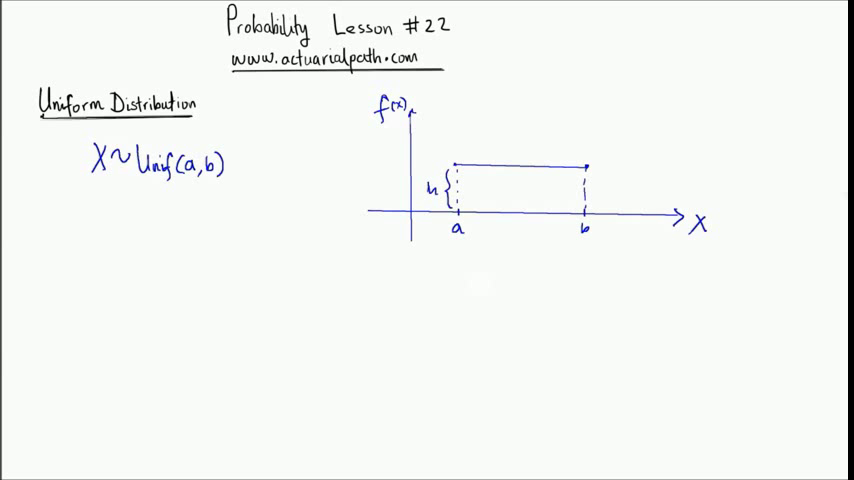 Probability Lesson #22
www.actuarialpath.com
Uniform Distribution
X~Unif(a,b)
f(x)
h
a
b
X